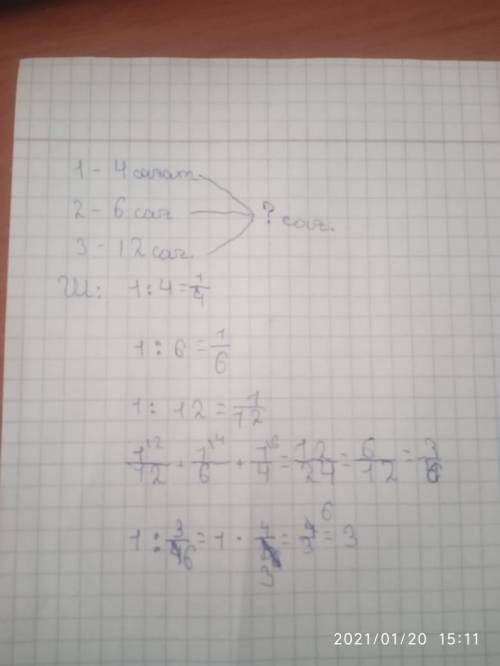 1 - 4 сағат
2 - 6 сағ
3 - 12 сағ.
? сағ.
Ш: 1 : 4 = 1/4
1 : 6 = 1/6
1 : 12 = 1/12
1/12 + 1/6 + 1/4 = 12/24 = 6/12 = 3/6
1 : 3/6 = 1 · = 6/3 = 3
2021/01/20 15:11